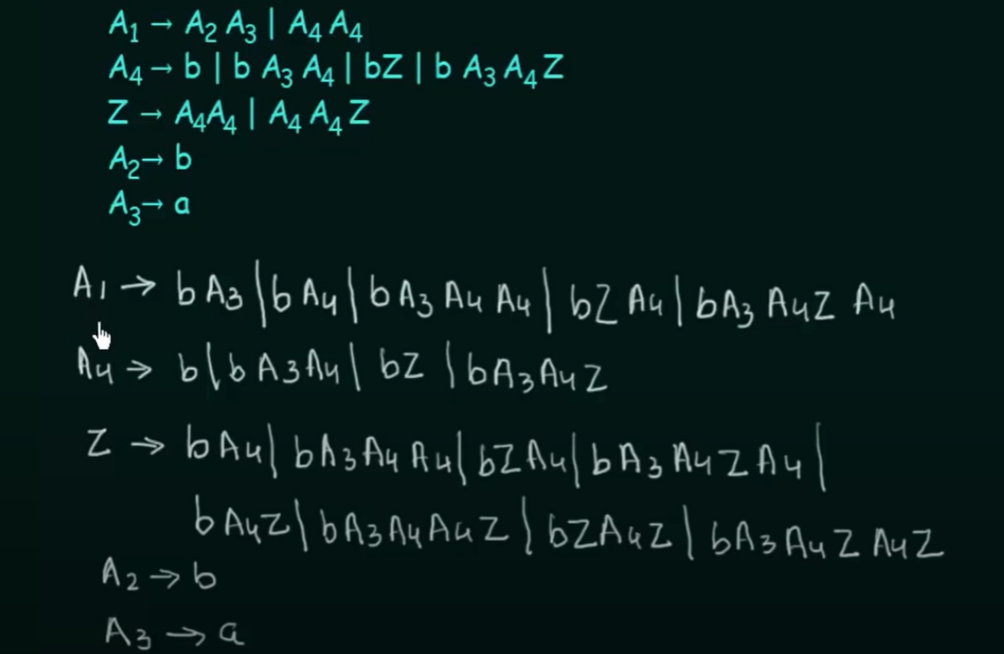 A₁ → A₂ A₃ | A₄ A₄
A₄ → b | b A₃ A₄ | bZ | b A₃ A₄ Z
Z → A₄A₄ | A₄ A₄ Z
A₂→ b
A₃→ a
A₁ → bA₃ | bA₄ | bA₃ A₄ A₄ | bZ A₄ | bA₃ A₄Z A₄
A₄ → b | b A₃A₄ | bZ | bA₃A₄Z
Z → bA₄ | bA₃A₄ A₄ | bZA₄ | bA₃ A₄ZA₄ |
bA₄Z | bA₃A₄A₄Z | bZA₄Z | bA₃A₄Z A₄Z
A₂ → b
A₃ → a